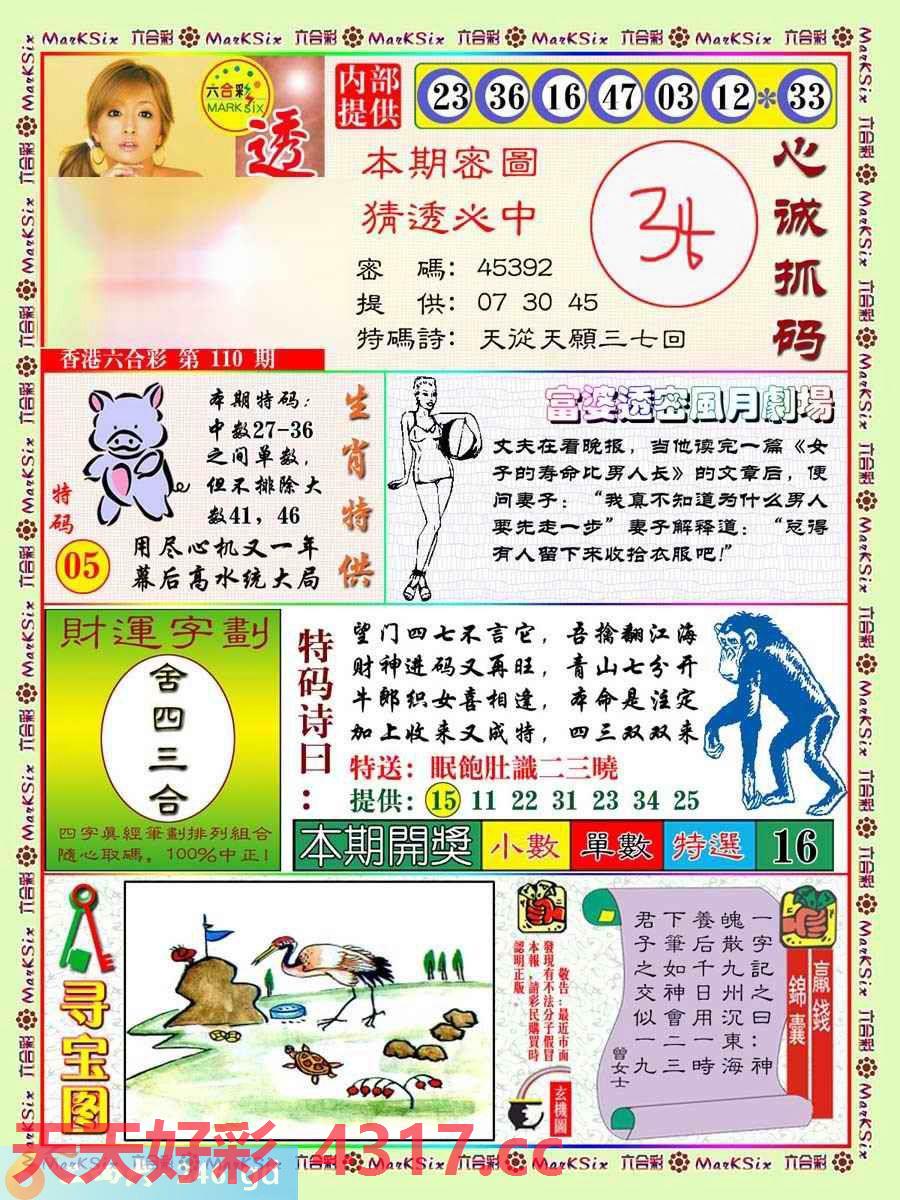 MarKSix 六合彩 MarKSix 六合彩 MarKSix 六合彩 MarKSix 六合彩 MarKSix 六合彩
六合彩
MARK SIX
透
内部
提供
23 36 16 47 03 12 * 33
本期密圖
猜透必中
密 碼：45392
提 供：07 30 45
特碼詩：天從天願三七回
心诚抓码
香港六合彩 第 110 期
本期特码：
中数27-36
之间单数，
但不排除大
数41，46
用尽心机又一年
幕后高水统大局
特码
05
生肖特供
富婆透密風月劇場
丈夫在看晚报，当他读完一篇《女
子的寿命比男人长》的文章后，便
问妻子：“我真不知道为什么男人
要先走一步”妻子解释道：“总得
有人留下来收拾衣服吧！”
財運字劃
舍四三合
四字真經筆劃排列組合
隨心取碼。100%中正！
特码诗曰：
望门四七不言它，吾擒翻江海
财神进码又再旺，青山七分开
牛郎织女喜相逢，本命是注定
加上收来又成特，四三双双来
特送：眠飽肚識二三曉
提供：15 11 22 31 23 34 25
本期開獎 小數 單數 特選 16
寻宝图
敬告：最近市面
發現有不法分子假冒
本報，請彩民購買時
認明正版。
玄機圖
一字記之曰：神
魄散九州沉東海
養后千日用一時
下筆如神會二三
君子之交似一九
曾女士
贏錢
錦囊
天天好彩 4317.cc
MarKSix 六合彩 MarKSix 六合彩 MarKSix 六合彩